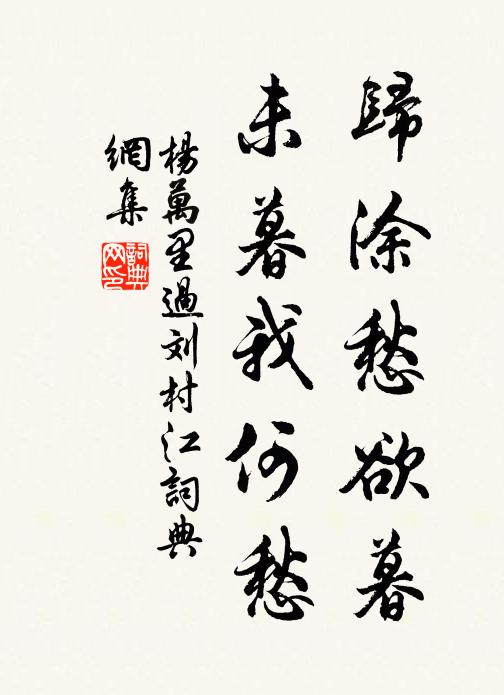 歸涂愁欲暮
未暮我何愁
楊萬里過刘村江詞典
網集
詞典
网印